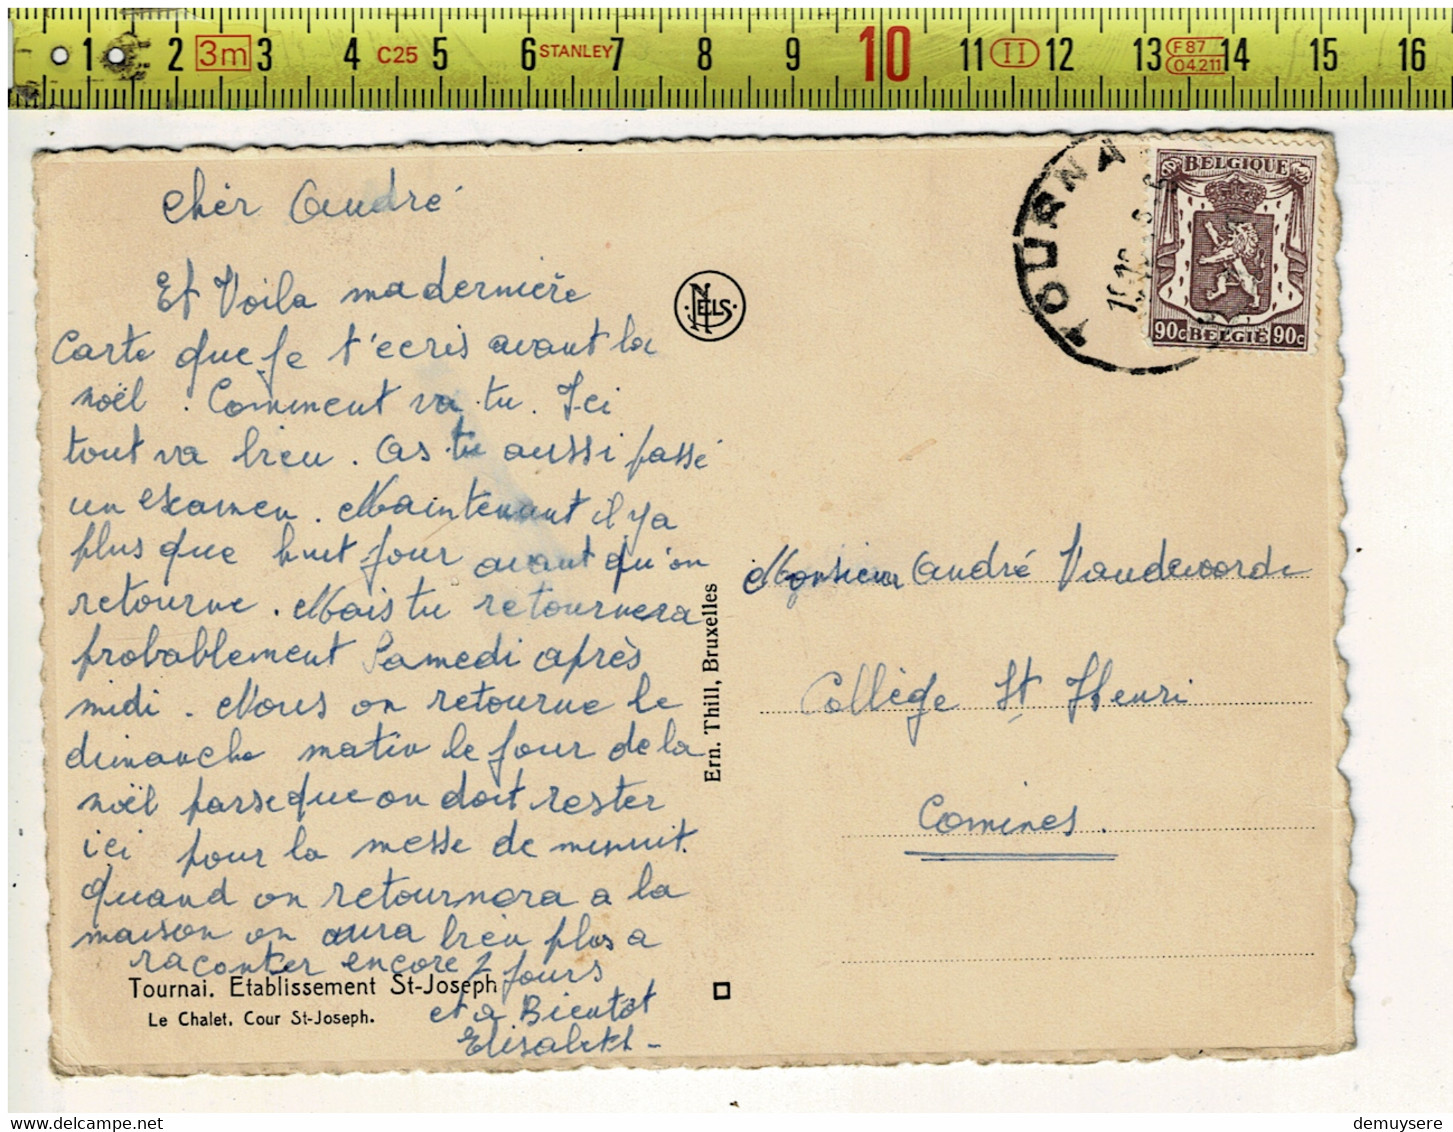 1 2 3m 3 4 C25 5 6 STANLEY 7 8 9 10 11 II 12 13 F 87 04.211 14 15 16
TOURNA
BELGIQUE
90c BELGIË 90c
NELS
Chèr André
Et Voila ma dernière
Carte que je t'ecris avant la
noël . Comment va tu . Ici
tout va bien . As tu aussi passé
un examen . Maintenant il y a
plus que huit jour avant qu'on
retourne . Mais tu retournera
probablement Samedi après
midi . Nous on retourne le
dimanche matin le jour de la
noël parseque on doit rester
ici pour la messe de minuit.
Quand on retournera a la
maison on aura bien plus a
raconter encore 2 jours
et a Bientôt
Elisabeth -
Tournai. Etablissement St-Joseph
Le Chalet, Cour St-Joseph.
Ern. Thill, Bruxelles
Monsieur André Vandewoorde
Collège St Henri
Comines.
demuysere